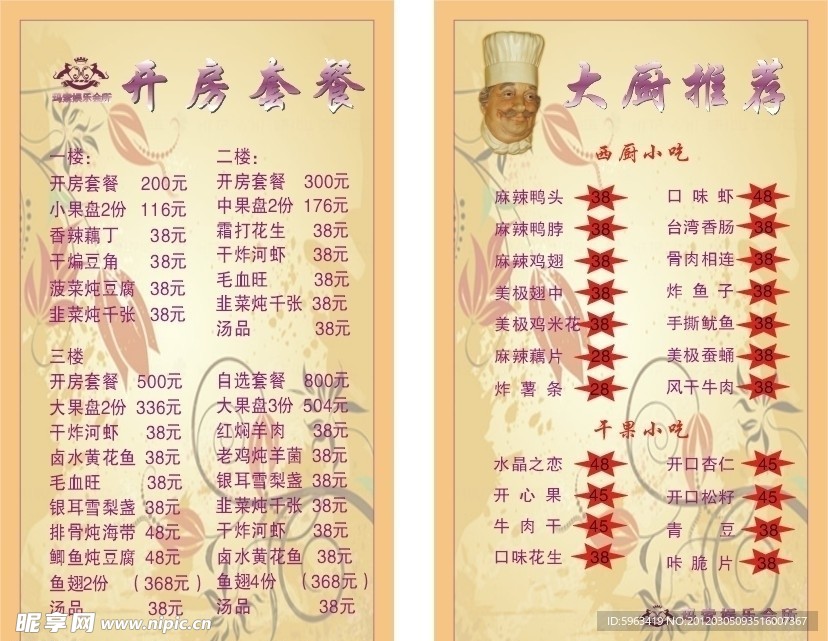 玛雅娱乐会所
开房套餐
一楼：
开房套餐 200元
小果盘2份 116元
香辣藕丁 38元
干煸豆角 38元
菠菜炖豆腐 38元
韭菜炖千张 38元
二楼：
开房套餐 300元
中果盘2份 176元
霜打花生 38元
干炸河虾 38元
毛血旺 38元
韭菜炖千张 38元
汤品 38元
三楼
开房套餐 500元
大果盘2份 336元
干炸河虾 38元
卤水黄花鱼 38元
毛血旺 38元
银耳雪梨盏 38元
排骨炖海带 48元
鲫鱼炖豆腐 48元
鱼翅2份 （368元）
汤品 38元
自选套餐 800元
大果盘3份 504元
红焖羊肉 38元
老鸡炖羊菌 38元
银耳雪梨盏 38元
韭菜炖千张 38元
干炸河虾 38元
卤水黄花鱼 38元
鱼翅4份 （368元）
汤品 38元
大厨推荐
西厨小吃
麻辣鸭头 38
麻辣鸭脖 38
麻辣鸡翅 38
美极翅中 38
美极鸡米花 38
麻辣藕片 28
炸薯条 28
口味虾 48
台湾香肠 38
骨肉相连 38
炸鱼子 38
手撕鱿鱼 38
美极蚕蛹 38
风干牛肉 38
干果小吃
水晶之恋 48
开心果 45
牛肉干 45
口味花生 38
开口杏仁 45
开口松籽 45
青豆 38
咔脆片 38
玛雅娱乐会所
昵享网 www.nipic.cn
ID:5963419 NO:20120305093516007367